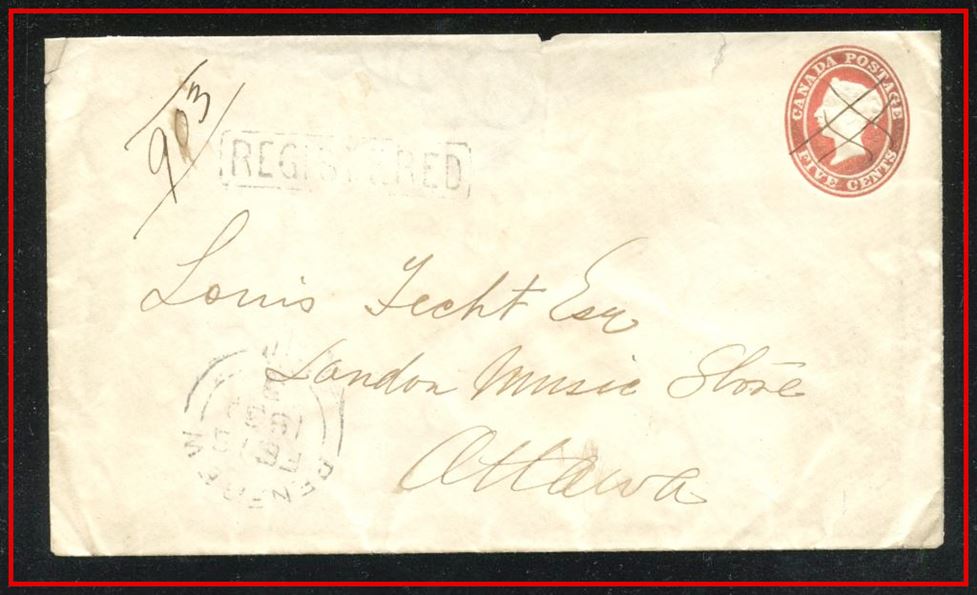 903
REGISTERED
CANADA POSTAGE
FIVE CENTS
Louis Fecht Esq
London Music Store
Ottawa
RENFREW